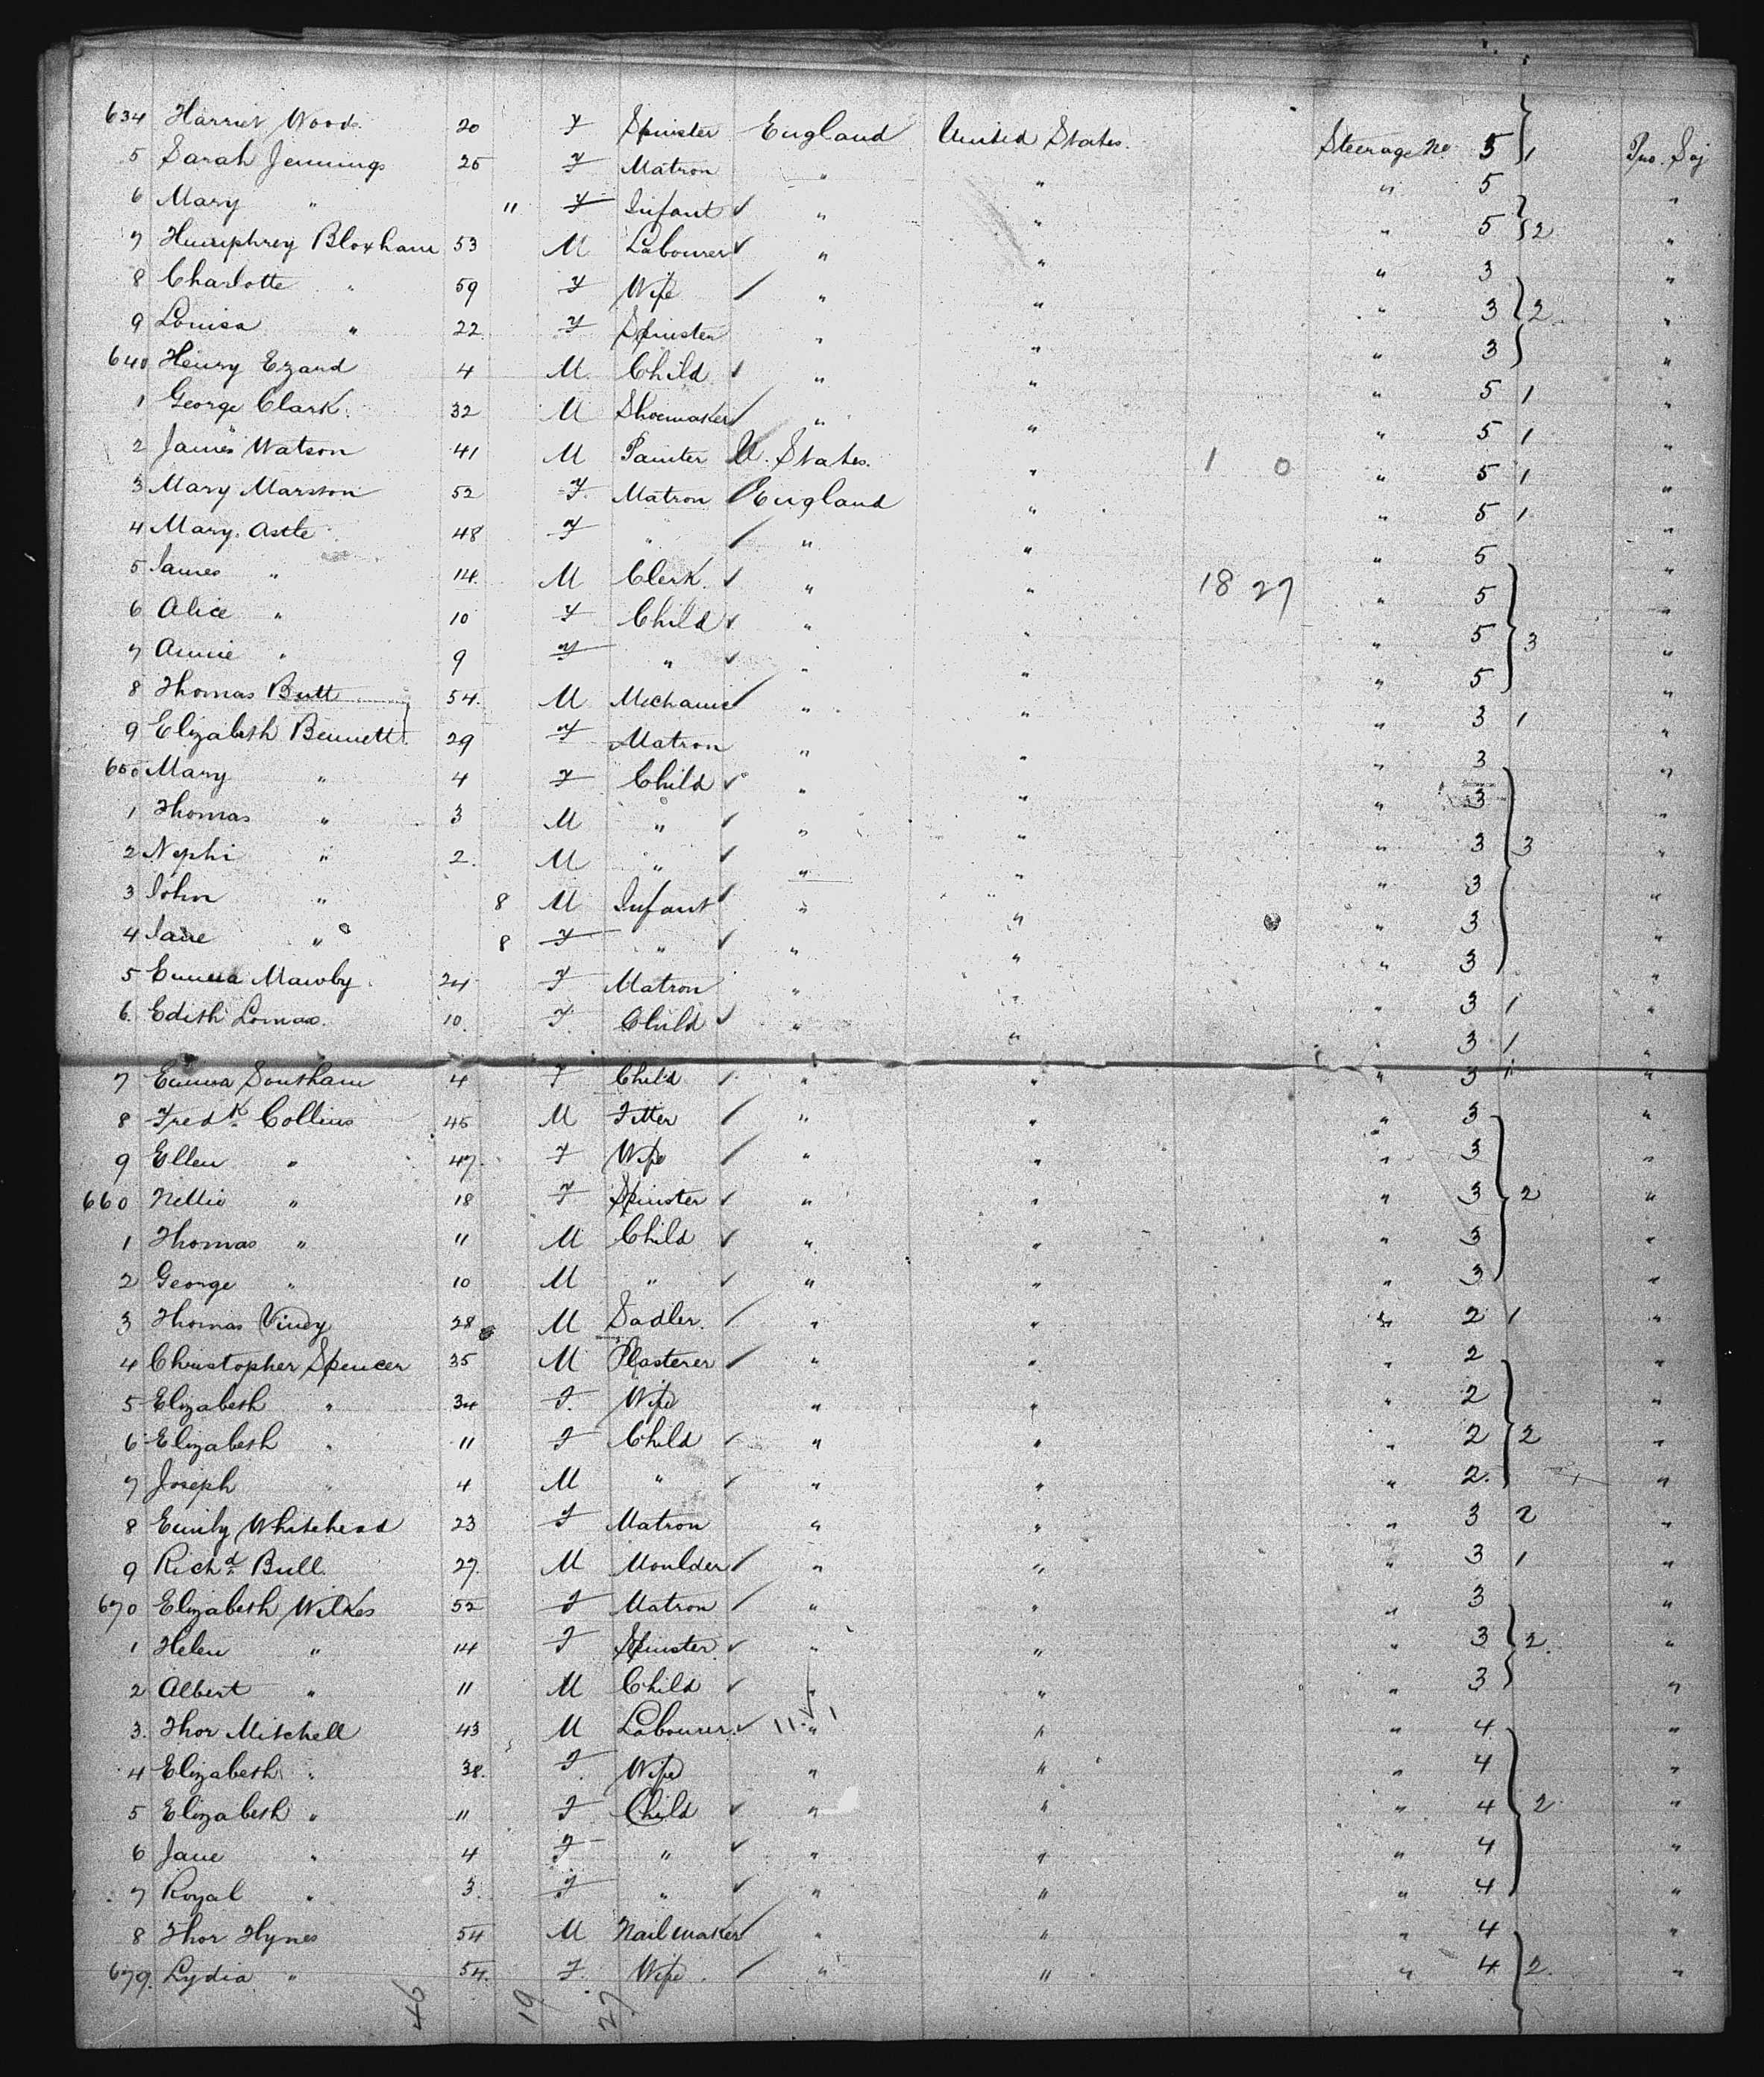 634 Harriet Wood. 20 F Spinster England United States. Steerage No 5 1 Pro. Soj
5 Sarah Jennings 25 F Matron " " " 5 "
6 Mary " 11 F Infant ✓ " " " 5 2 "
7 Humphrey Bloxham 53 M Labourer ✓ " " " 3 "
8 Charlotte " 59 F Wife ✓ " " " 3 2 "
9 Louisa " 22 F Spinster " " " 3 "
640 Henry Ezard 4 M. Child ✓ " " " 5 1 "
1 George Clark. 32 M Shoemaker ✓ " " " 5 1 "
2 James Watson 41 M Painter U. States. " 1 0 " 5 1 "
3 Mary Marston 52 F. Matron ✓ England " " 5 1 "
4 Mary. Astle 48 F " ✓ " " " 5 "
5 James " 14 M Clerk. ✓ " " 18 27 " 5 "
6 Alice " 10 F Child ✓ " " " 5 3 "
7 Annie " 9 F " ✓ " " " 5 "
8 Thomas Butt 54. M Mechanic ✓ " " " 3 1 "
9 Elizabeth Bennett 29 F Matron " " " 3 "
650 Mary " 4 F Child ✓ " " " 3 "
1 Thomas " 3 M " ✓ " " " 3 3 "
2 Nephi " 2. M " ✓ " " " 3 "
3 John " 8 M Infant ✓ " " " 3 "
4 Jane " 8 F " ✓ " " " 3 "
5 Emma Mawby 24 F Matron " " " 3 1 "
6. Edith Lomax. 10. F. Child ✓ " " " 3 1 "
7 Emma Southam 4 F Child ✓ " " " 3 1 "
8 Fredk. Collins 45 M Fitter ✓ " " " 3 "
9 Ellen " 47. F Wife ✓ " " " 3 "
660 Nellie " 18 F Spinster ✓ " " " 3 2 "
1 Thomas " 11 M Child ✓ " " " 3 "
2 George " 10 M " ✓ " " " 3 "
3 Thomas Viney 28 M Sadler. ✓ " " " 2 1 "
4 Christopher Spencer 35 M Plasterer ✓ " " " 2 "
5 Elizabeth " 34 F. Wife " " " 2 "
6 Elizabeth " 11 F Child ✓ " " " 2 2 "
7 Joseph " 4 M " ✓ " " " 2. "
8 Emily Whitehead 23 F Matron " " " 3 2 "
9 Richd. Bull. 27. M Moulder ✓ " " " 3 1 "
670 Elizabeth Wilkes 52 F Matron ✓ " " " 3 "
1 Helen " 14 F Spinster. ✓ " " " 3 2. "
2 Albert " 11 M Child ✓ " " " 3 "
3. Thos Mitchell 43 M Labourer. ✓ " " " 4 "
4 Elizabeth " 38. F. Wife " " " 4 "
5 Elizabeth " 11 F Child ✓ " " " 4 2 "
6 Jane " 4 F " ✓ " " " 4 "
7 Royal " 3. F " ✓ " " " 4 "
8 Thos Hynes 54 M Nailmaker ✓ " " " 4 "
679. Lydia " 54. F. Wife. ✓ " " " 4 2. "
46 19 27